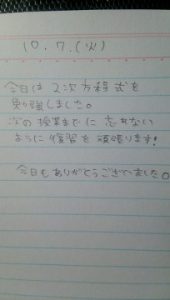 10.7.(火)
今日は2次方程式を
勉強しました。
次の授業までに忘れない
ように復習を頑張ります!
今日もありがとうございました。